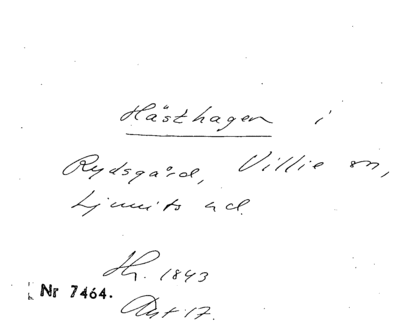 Hästhagen i
Rydsgård, Villie sn,
Ljunits hd.
1843
Nr 7464.
17.